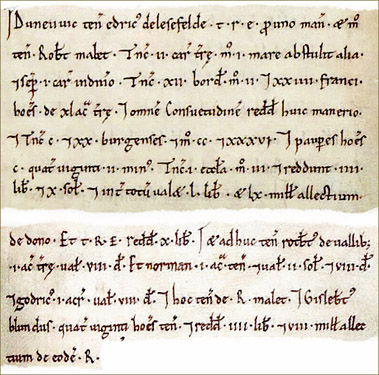 Duneuuic ten& edric' de lesefelde · t · r · e · p uno man · & m̊
ten& · Rob't malet · Tnc̄ · ii · car' t're · m̊ · i · mare abstulit alia ·
i car' in dnio · Tnc̄ · xii · bord' · m̊ · ii · 7 xxiiii · franci ·
ho͞es · de xl ac' t're · 7 omne͞ Consuetudine͞ redd' huic manerio ·
7 Tnc̄ · c · 7 xx · burgenses · 7 m̊ · cc · 7 xxxvi · 7 paup'es ho͞es
c · quat' viginti · ii · min' · Tnc̄ · i · eccl'a · m̊ · iii · 7 reddunt · iiii ·
lib' · 7 x · sol' · 7 int' totu͞ val& · l · lib' · & lx · mill' allectium ·
de dono · Et t · R · E · redd' · x · lib' · 7 adhuc ten& rotb't' de vallib;
i · ac' t're · val' · viii · d' · Et norman · i · ac' · ten& · 7 val' · ii · sol' · 7 viii · d' ·
7 godric' · i · acr' · val' · viii · d' · 7 hoc ten& de · R · malet · 7 Gisleb't'
blundus · quat' viginti ho͞es · ten& · 7 redd' · iiii · lib' · 7 viii · mill' allec
tium de eode͞ · R ·